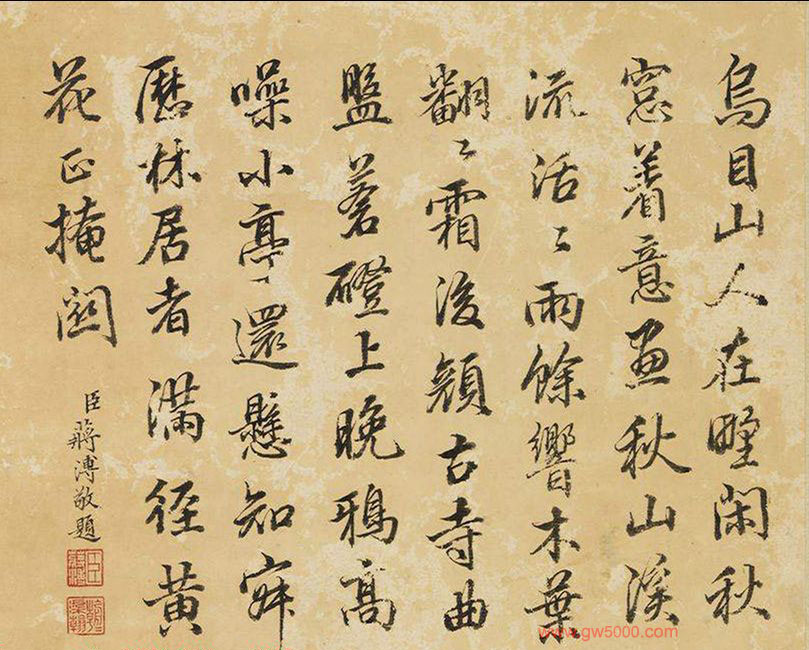 烏目山人在墅閑秋
窓着意畫秋山溪
流活〻雨餘響木葉
翻〻霜後顏古寺曲
盤蒼磴上晚鴉高
噪小亭還懸知寂
歷林居者滿徑黃
花正掩關
臣蔣溥敬題
www.gw5000.com